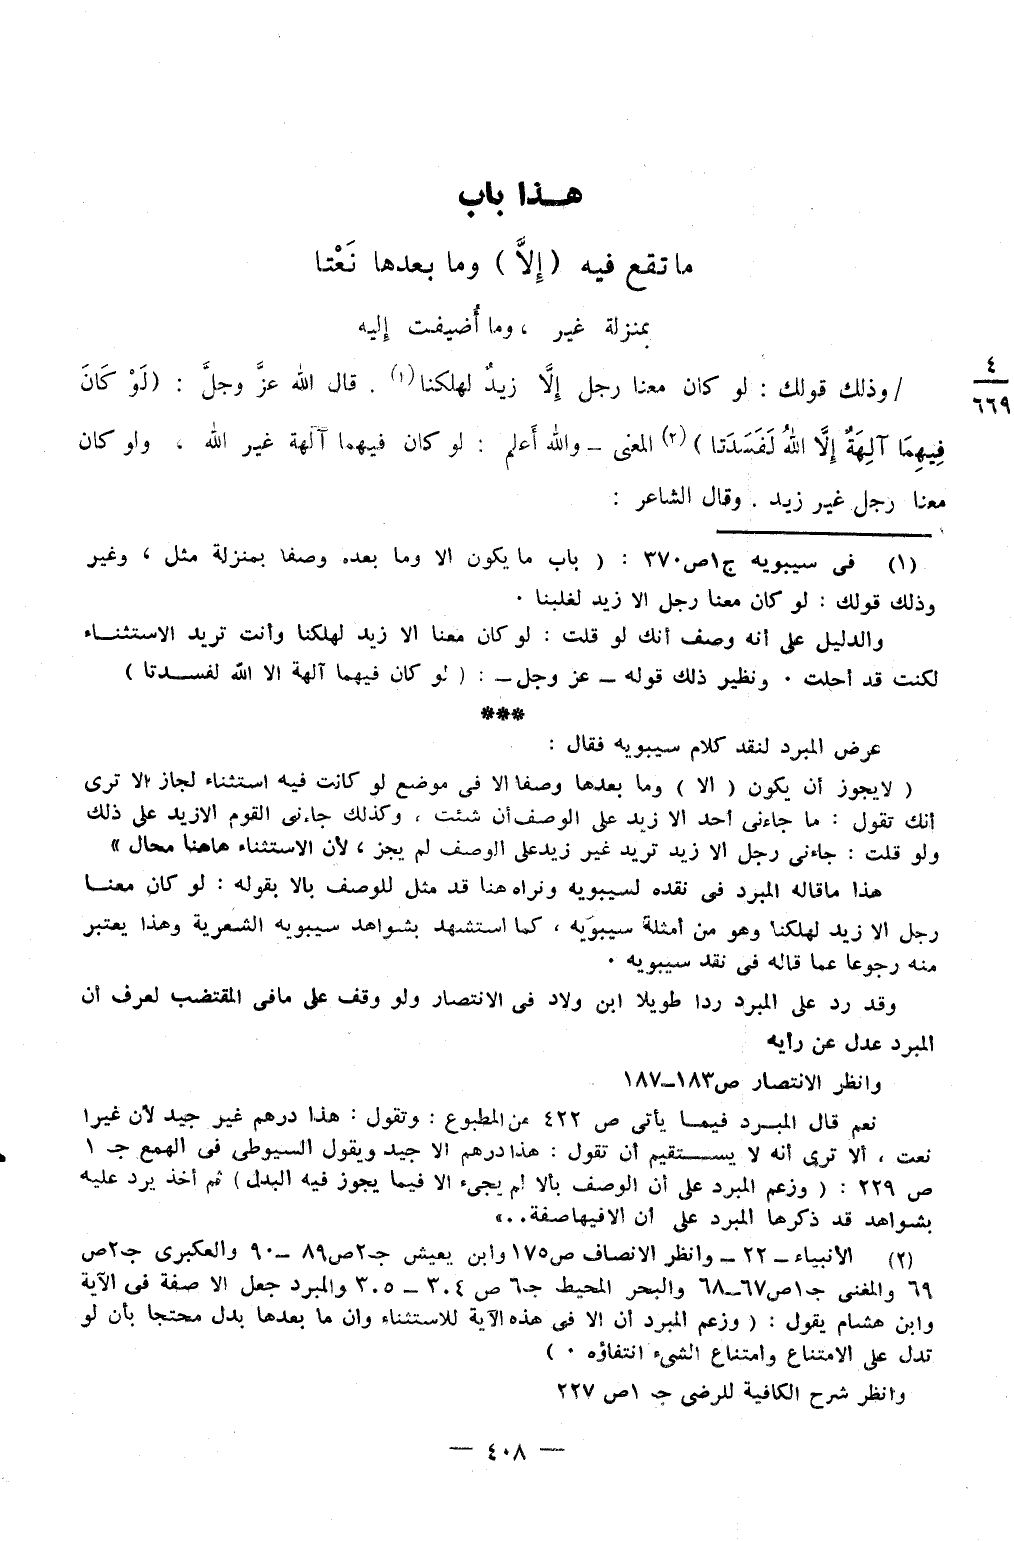 هـذا باب
ما تقع فيه ( إِلاَّ ) وما بعدها نَعْتا
بمنزلة غير ، وما أُضيفت إليه
٤
٦٦٩
/ وذلك قولك : لو كان معنا رجل إِلَّا زيدٌ لهلكنا (١) . قال الله عزَّ وجلَّ : (لَوْ كَانَ
فِيهِمَا آلِهَةٌ إِلَّا اللهُ لَفَسَدَتا ) (٢) المعنى – والله أَعلم : لو كان فيهما آلهة غير الله ، ولو كان
معنا رجل غير زيد . وقال الشاعر :
(١) فى سيبويه ج١ص٣٧٠ : ( باب ما يكون الا وما بعده وصفا بمنزلة مثل ، وغير
وذلك قولك : لو كان معنا رجل الا زيد لغلبنا ٠
والدليل على أنه وصف أنك لو قلت : لو كان معنا الا زيد لهلكنا وأنت تريد الاستثنـاء
لكنت قد أحلت ٠ ونظير ذلك قوله – عز وجل – : ( لو كان فيهما آلهة الا الله لفسـدتا )
***
عرض المبرد لنقد كلام سيبويه فقال :
( لايجوز أن يكون ( الا ) وما بعدها وصفا الا فى موضع لو كانت فيه استثناء لجاز ألا ترى
أنك تقول : ما جاءنى أحد الا زيد على الوصف أن شئت ، وكذلك جاءنى القوم الازيد على ذلك
ولو قلت : جاءنى رجل الا زيد تريد غير زيد على الوصف لم يجز ، لأن الاستثناء هاهنا محال »
هذا ماقاله المبرد فى نقده لسيبويه ونراه هنا قد مثل للوصف بالا بقوله : لو كان معنـا
رجل الا زيد لهلكنا وهو من أمثلة سيبويه ، كما استشهد بشواهد سيبويه الشعرية وهذا يعتبر
منه رجوعا عما قاله فى نقد سيبويه ٠
وقد رد على المبرد ردا طويلا ابن ولاد فى الانتصار ولو وقف على مافى المقتضب لعرف أن
المبرد عدل عن رأيه
وانظر الانتصار ص١٨٣–١٨٧
نعم قال المبـرد فيمـا يأتى ص ٤٢٢ من المطبوع : وتقول : هذا درهم غير جيد لأن غيرا
نعت ، ألا ترى أنه لا يسـتقيم أن تقول : هذا درهم الا جيد ويقول السيوطى فى الهمع جـ ١
ص ٢٢٩ : ( وزعم المبرد على أن الوصف بالا لم يجىء الا فيما يجوز فيه البدل ) ثم أخذ يرد عليه
بشواهد قد ذكرها المبرد على أن الافيهاصفة..»
(٢) الأنبياء – ٢٢ – وانظر الانصاف ص١٧٥ وابن يعيش جـ٢ص٨٩ – ٩٠ والعكبرى جـ٢ص
٦٩ والمغنى جـ١ص٦٧–٦٨ والبحر المحيط جـ٦ ص ٣٠٤ – ٣٠٥ والمبرد جعل الا صفة فى الآية
وابن هشام يقول : ( وزعم المبرد أن الا فى هذه الآية للاستثناء وان ما بعدها بدل محتجا بأن لو
تدل على الامتناع وامتناع الشىء انتفاؤه ٠ )
وانظر شرح الكافية للرضى جـ ١ص ٢٢٧
– ٤٠٨ –